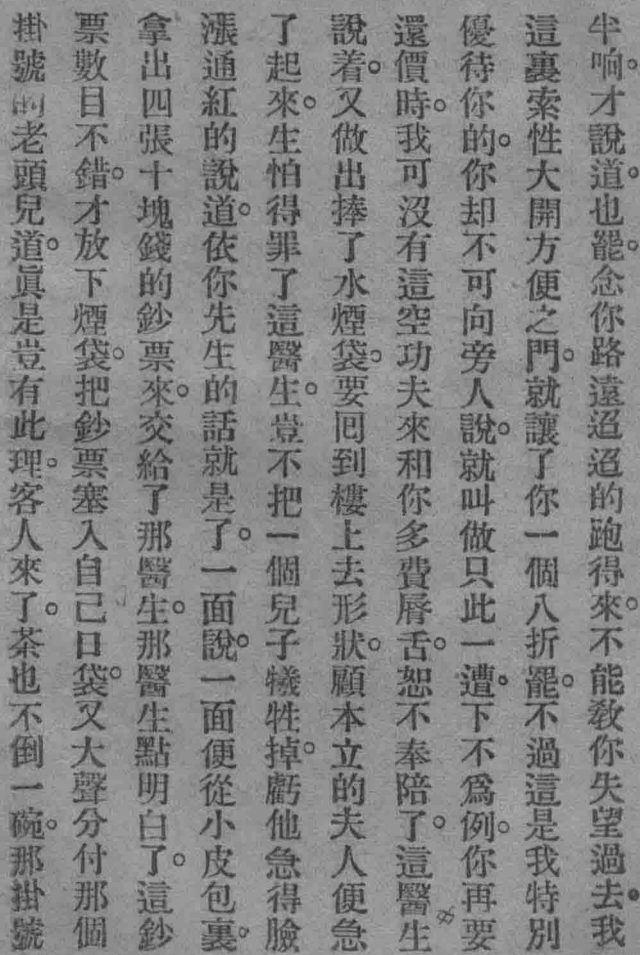 半响。才說道。也罷。念你路遠迢迢的跑得來。不能敎你失望過去。我
這裏索性大開方便之門。就讓了你一個八折罷。不過這是我特別
優待你的。你却不可向旁人說。就叫做只此一遭。下不爲例。你再要
還價時。我可沒有這空功夫來和你多費唇舌。恕不奉陪了。這醫生
說着。又做出捧了水煙袋。要囘到樓上去形狀。顧本立的夫人便急
了起來。生怕得罪了這醫生。豈不把一個兒子犧牲掉。虧他急得臉
漲通紅的說道。依你先生的話就是了。一面說。一面便從小皮包裏。
拿出四張十塊錢的鈔票來。交給了那醫生。那醫生點明白了。這鈔
票數目不錯。才放下煙袋。把鈔票塞入自己口袋。又大聲分付那個
掛號的老頭兒道。眞是豈有此理。客人來了。茶也不倒一碗。那掛號